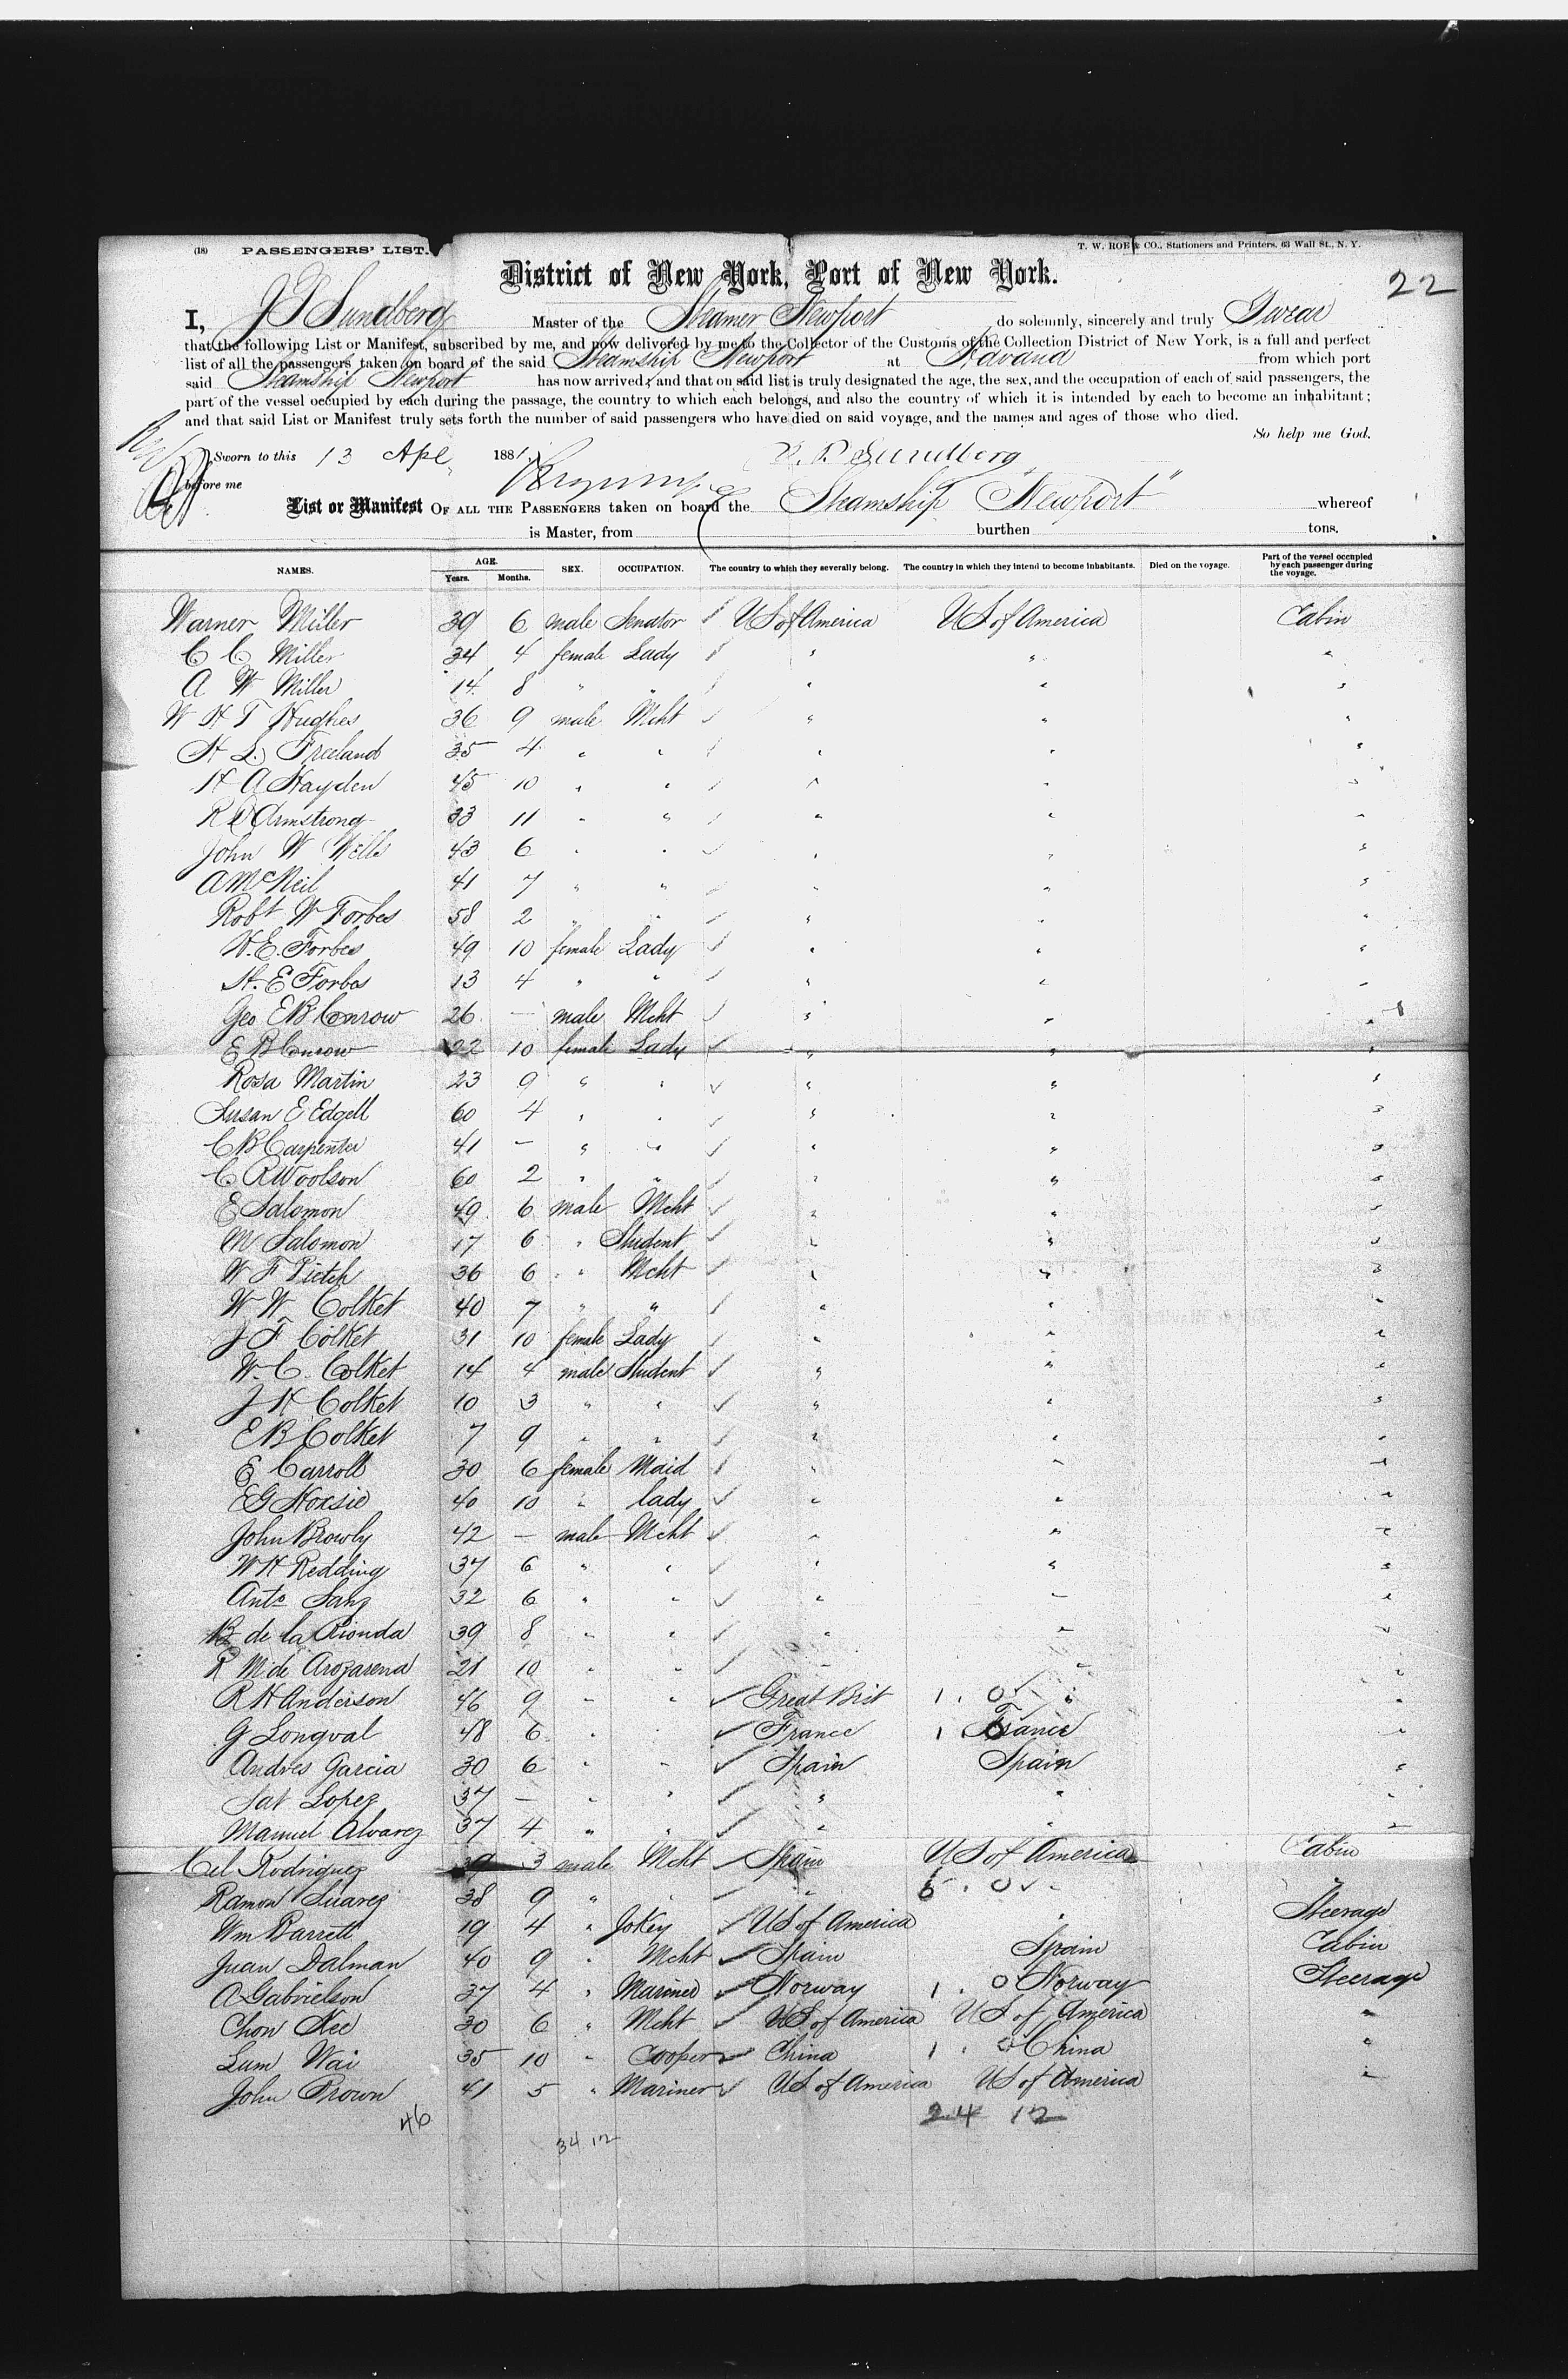 (18) PASSENGERS' LIST. T. W. ROE & CO., Stationers and Printers, 63 Wall St., N. Y.
District of New York, Port of New York. 22
I, J P Sundberg Master of the Steamer Newport do solemnly, sincerely and truly Swear
that the following List or Manifest, subscribed by me, and now delivered by me to the Collector of the Customs of the Collection District of New York, is a full and perfect
list of all the passengers taken on board of the said Steamship Newport at Havana from which port
said Steamship Newport has now arrived; and that on said list is truly designated the age, the sex, and the occupation of each of said passengers, the
part of the vessel occupied by each during the passage, the country to which each belongs, and also the country of which it is intended by each to become an inhabitant;
and that said List or Manifest truly sets forth the number of said passengers who have died on said voyage, and the names and ages of those who died.
So help me God.
Sworn to this 13 Apl 1881. J. P. Sundberg
before me
List or Manifest OF ALL THE PASSENGERS taken on board the Steamship "Newport" whereof
is Master, from burthen tons.
NAMES. AGE. Years. Months. SEX. OCCUPATION. The country to which they severally belong. The country in which they intend to become inhabitants. Died on the voyage. Part of the vessel occupied by each passenger during the voyage.
Warner Miller 39 6 male Senator US of America US of America Cabin
C C Miller 34 4 female Lady " " "
A W Miller 14 8 " " " " "
W H T Hughes 36 9 male Mcht " " "
H L Freeland 35 4 " " " " "
H A Hayden 45 10 " " " " "
R D Armstrong 33 11 " " " " "
John W Wells 43 6 " " " " "
A McNeil 41 7 " " " " "
Robt W Forbes 58 2 " " " " "
W. E. Forbes 49 10 female Lady " " "
H. E Forbes 13 4 " " " " "
Geo E B Conrow 26 — male Mcht " " "
E B Conrow 22 10 female Lady " " "
Rosa Martin 23 9 " " " " "
Susan E Edgell 60 4 " " " " "
C B Carpenter 41 — " " " " "
C R Woolson 60 2 " " " " "
E Salomon 49 6 male Mcht " " "
M Salomon 17 6 " Student " " "
W F 36 6 " Mcht " " "
W W Colket 40 7 " " " " "
J F Colket 31 10 female Lady " " "
W. C. Colket 14 4 male Student " " "
J H Colket 10 3 " " " " "
E B Colket 7 9 " " " " "
E Carroll 30 6 female Maid " " "
E G Hoxsie 40 10 " lady " " "
John Browly 42 — male Mcht " " "
W H Redding 37 6 " " " " "
Anto Sanz 32 6 " " " " "
B de la Rionda 39 8 " " " " "
R M de Arozarena 21 10 " " " " "
R H Anderson 46 9 " " Great Brit 1 . 0 " "
G Longval 48 6 " " France 1 France "
Andres Garcia 30 6 " " Spain Spain "
Sat Lopez 37 — " " " " "
Manuel Alvarez 37 4 " " " " "
Cel Rodriguez 39 3 male Mcht Spain US of America Cabin
Ramon Suarez 38 9 " " " 5 . 0 " "
Wm Barrett 19 4 " Jokey US of America " Steerage
Juan Dalman 40 9 " Mcht Spain Spain Cabin
A Gabrielson 37 4 " Mariner Norway 1 . 0 Norway Steerage
Chon Kee 30 6 " Mcht US of America US of America "
Lum Wai 35 10 " Cooper China 1 . 0 China "
John Brown 41 5 " Mariner US of America US of America "
24 12
46
34 12